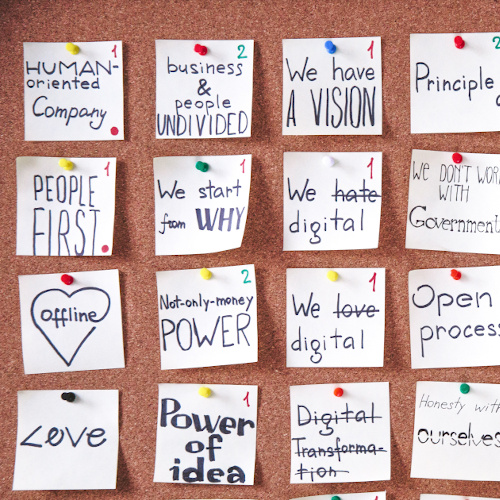 1
HUMAN-
oriented
Company
2
business
&
people
UNDIVIDED
1
We have
A VISION
2
Principle
1
PEOPLE
FIRST
1
We start
from WHY
1
We hate
digital
We DON'T WOR
WITH
Government
offline
2
Not-only-money
POWER
1
We love
digital
Open
process
Love
1
Power
of
idea
Digital
Transforma-
tion
Honesty with
ourselves